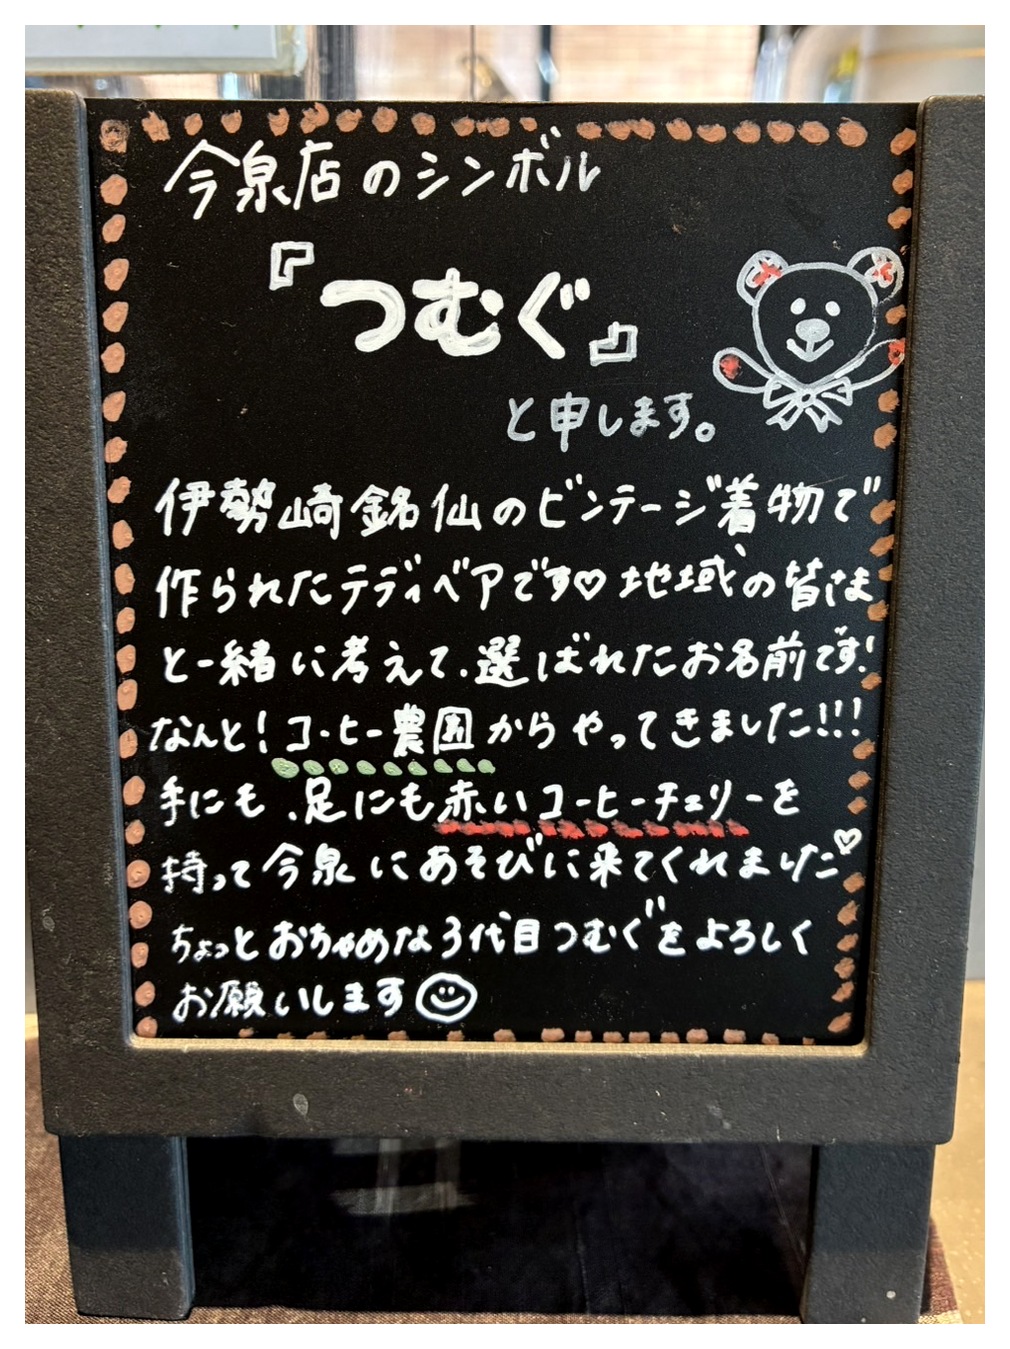 今泉店のシンボル
『つむぐ』
と申します。
伊勢崎銘仙のビンテージ着物で
作られたテディベアです♡ 地域の皆さま
と一緒に考えて、選ばれたお名前です!
なんと!コーヒー農園からやってきました!!!
手にも、足にも赤いコーヒーチェリーを
持って今泉にあそびに来てくれました♡
ちょっとおちゃめな3代目つむぐをよろしく
お願いします☺